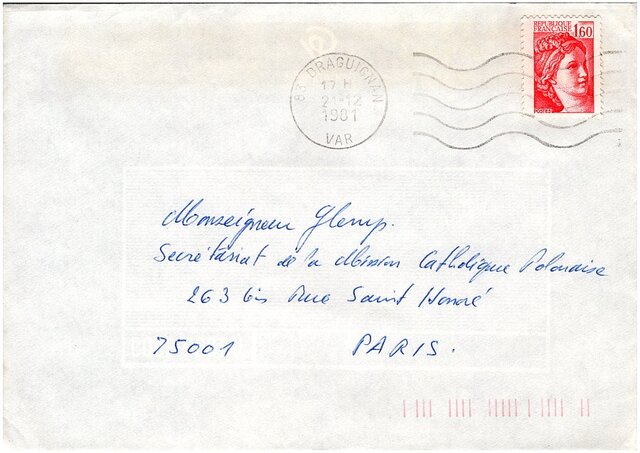 REPUBLIQUE
FRANÇAISE 1,60
POSTES
83 DRAGUIGNAN
17 H
21-12
1981
VAR
Monseigneur Glemp.
Secrétariat de la Mission Catholique Polonaise
263 bis Rue Saint Honoré
75001 PARIS.